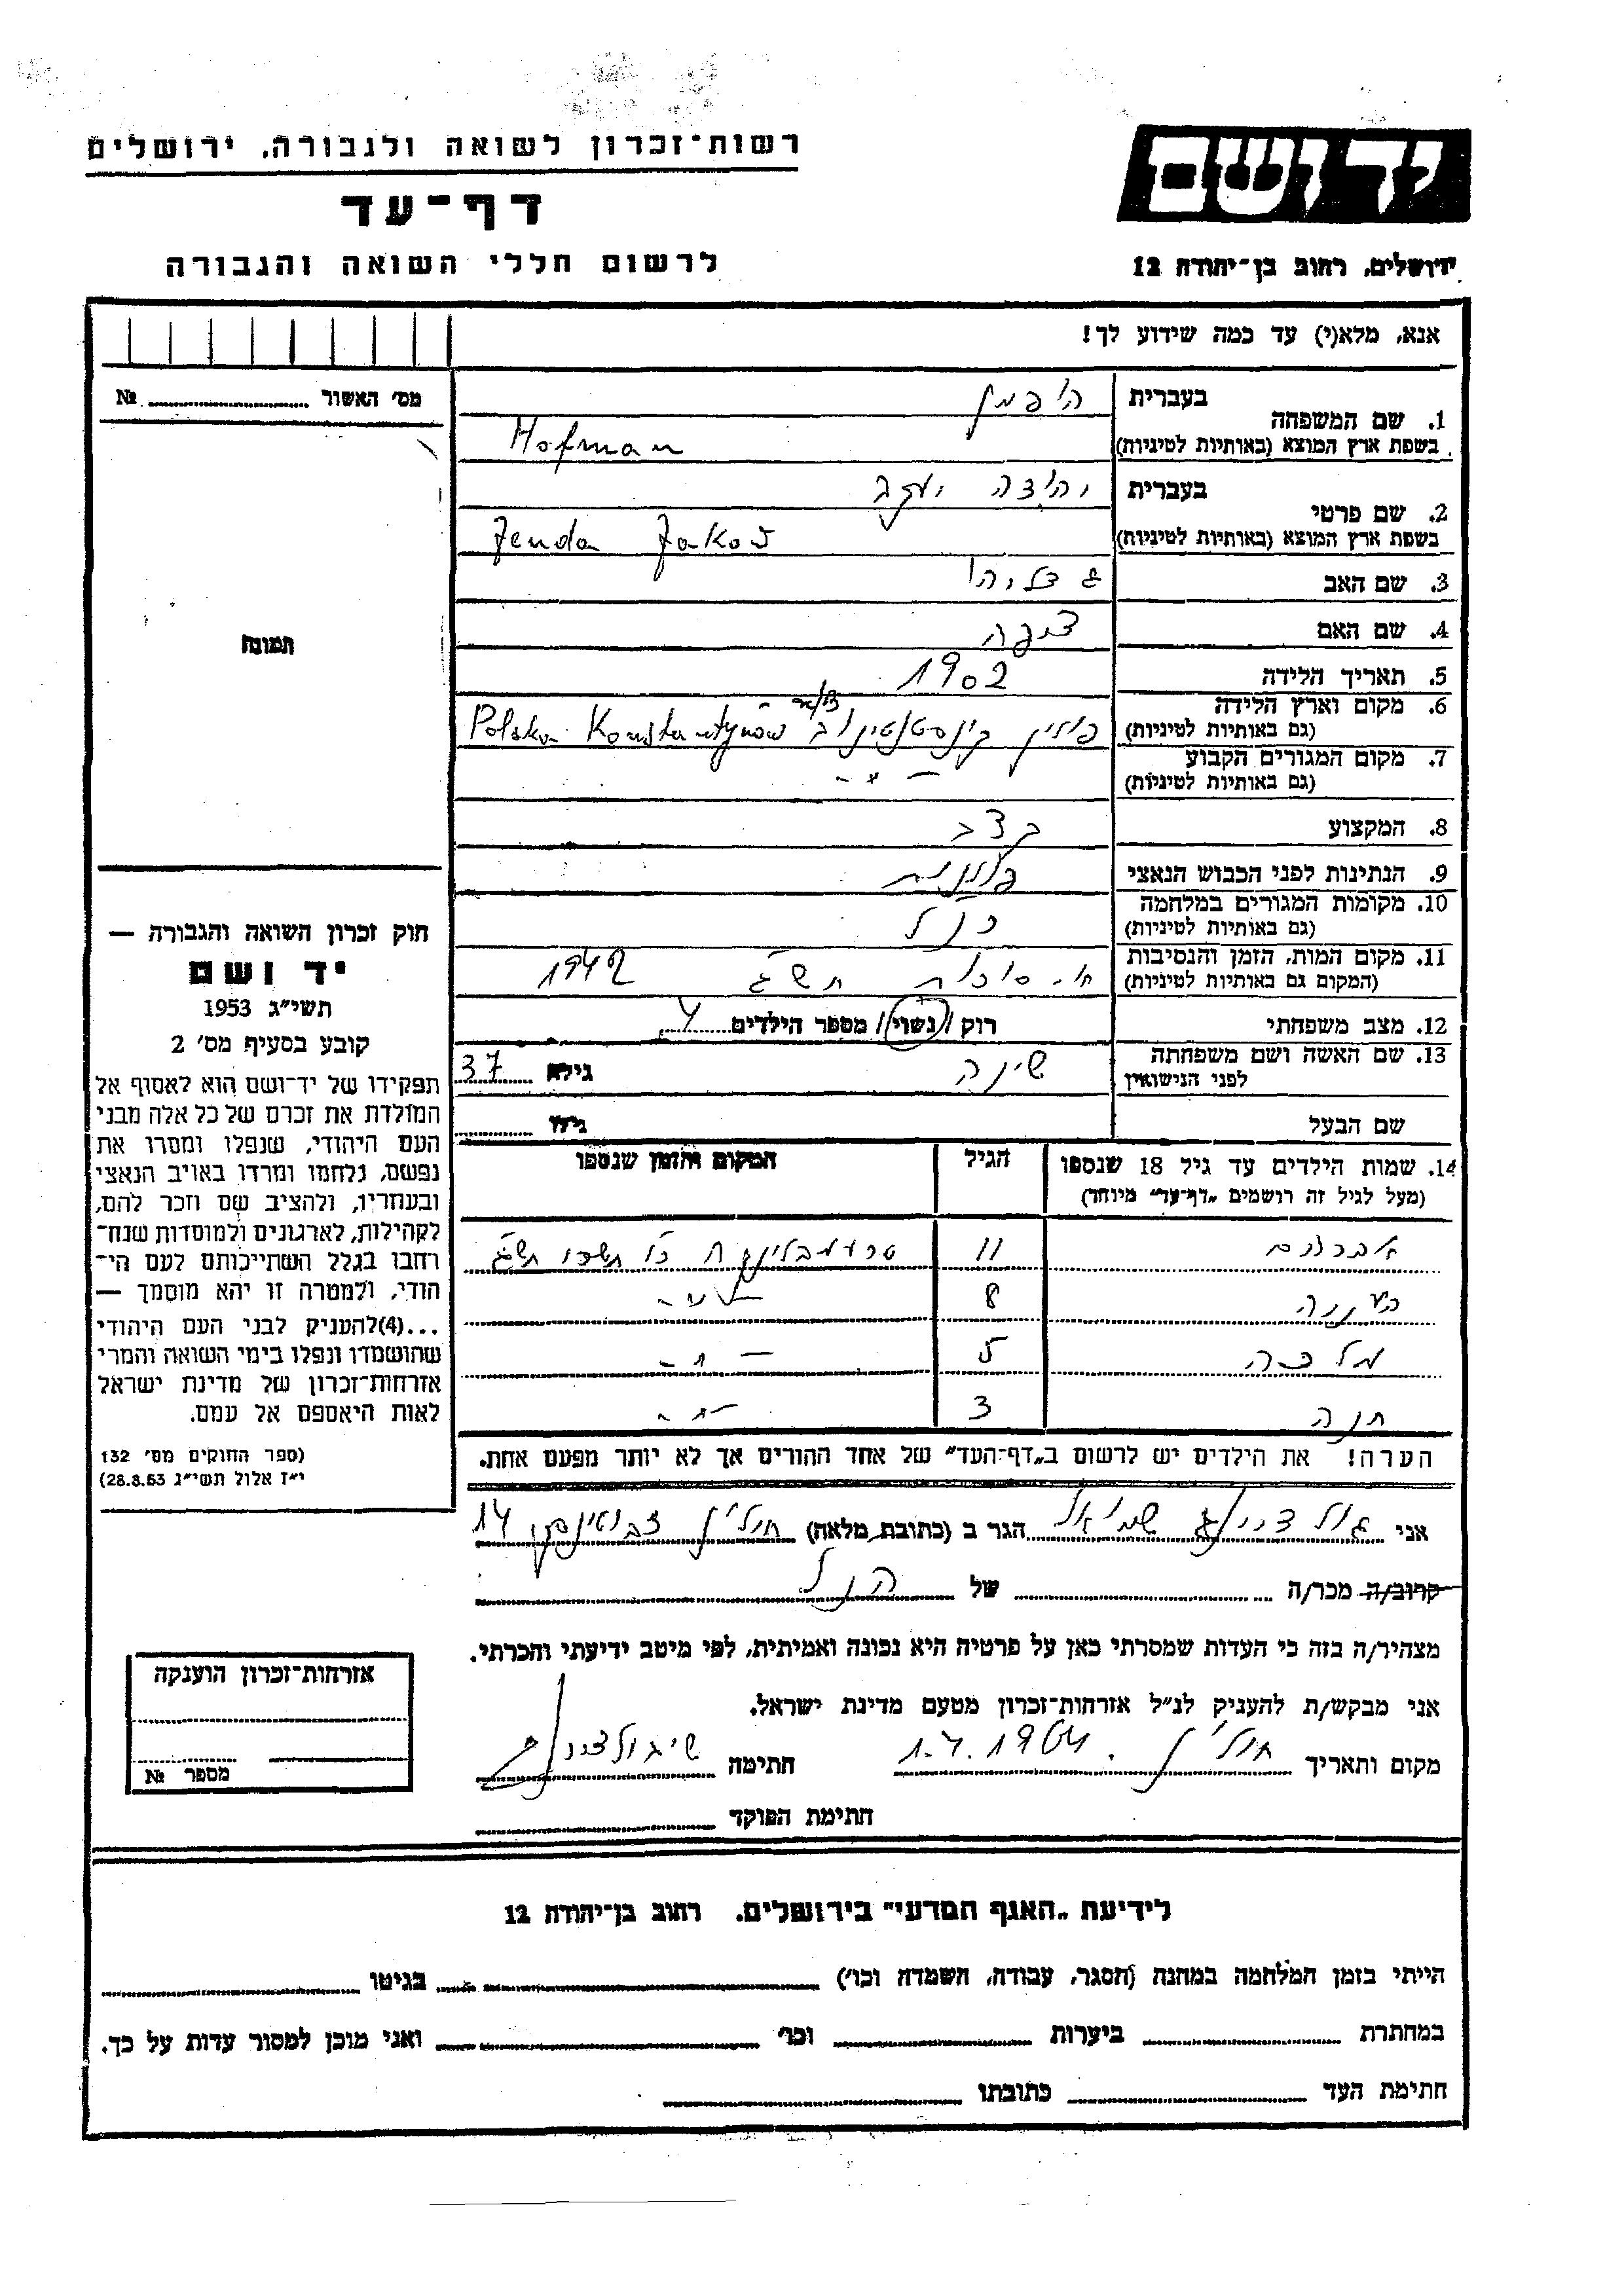 רשות־זכרון לשואה ולגבורה, ירושלים
דף־עד
לרשום חללי השואה והגבורה
יד ושם
ירושלים, רחוב בן־יהודה 12
אנא, מלא(י) עד כמה שידוע לך!
מס׳ האשור № 
בעברית הופמן
1. שם המשפחה
בשפת ארץ המוצא (באותיות לטיניות) Hofman
בעברית יהודה יעקב
2. שם פרטי
בשפת ארץ המוצא (באותיות לטיניות) Jenda Jakov
3. שם האב גדליהו
4. שם האם
5. תאריך הלידה 1902
6. מקום וארץ הלידה
(גם באותיות לטיניות) פולין קונסטנטינוב Polska Konstantynów
7. מקום המגורים הקבוע
(גם באותיות לטיניות) -"-
8. המקצוע קצב
9. הנתינות לפני הכבוש הנאצי פולנית
10. מקומות המגורים במלחמה
(גם באותיות לטיניות) כנ״ל
11. מקום המות, הזמן והנסיבות
(המקום גם באותיות לטיניות) תש״ג 1942
12. מצב משפחתי רוק / נשוי / מספר הילדים 4
13. שם האשה ושם משפחתה
לפני הנישואין שינה גילה 37
שם הבעל גילו
14. שמות הילדים עד גיל 18 שנספו
(מעל לגיל זה רושמים „דף־עד״ מיוחד)
הגיל
המקום והזמן שנספו
אברהם 11 טרעמבלינקה כ״ו תשרי תש״ג
8 -"-
מלכה 5 -"-
חנה 3 -"-
הערה! את הילדים יש לרשום ב„דף־העד״ של אחד ההורים אך לא יותר מפעם אחת.
אני גולדצווייג שמואל הגר ב (כתובת מלאה) חולון ז׳בוטינסקי 14
קרוב/ה מכר/ה של הנ״ל
מצהיר/ה בזה כי העדות שמסרתי כאן על פרטיה היא נכונה ואמיתית, לפי מיטב ידיעתי והכרתי.
אני מבקש/ת להעניק לנ״ל אזרחות־זכרון מטעם מדינת ישראל.
מקום ותאריך חולון 1.4.1964 חתימה
חתימת הפוקד
תמונה
חוק זכרון השואה והגבורה —
יד ושם
תשי״ג 1953
קובע בסעיף מס׳ 2
תפקידו של יד־ושם הוא לאסוף אל
המולדת את זכרם של כל אלה מבני
העם היהודי, שנפלו ומסרו את
נפשם, נלחמו ומרדו באויב הנאצי
ובעוזריו, ולהציב שם וזכר להם,
לקהילות, לארגונים ולמוסדות שנח־
רחבו בגלל השתייכותם לעם הי־
הודי, ולמטרה זו יהא מוסמך —
...(4)להעניק לבני העם היהודי
שהושמדו ונפלו בימי השואה והמרי
אזרחות־זכרון של מדינת ישראל
לאות היאספם אל עמם.
(ספר החוקים מס׳ 132
י״ז אלול תשי״ג 28.8.53)
אזרחות־זכרון הוענקה
מספר №
לידיעת „האגף המדעי״ בירושלים, רחוב בן־יהודה 12
הייתי בזמן המלחמה במחנה (הסגר, עבודה, השמדה וכו׳) בגיטו
במחתרת ביערות וכו׳ ואני מוכן למסור עדות על כך.
חתימת העד כתובתו